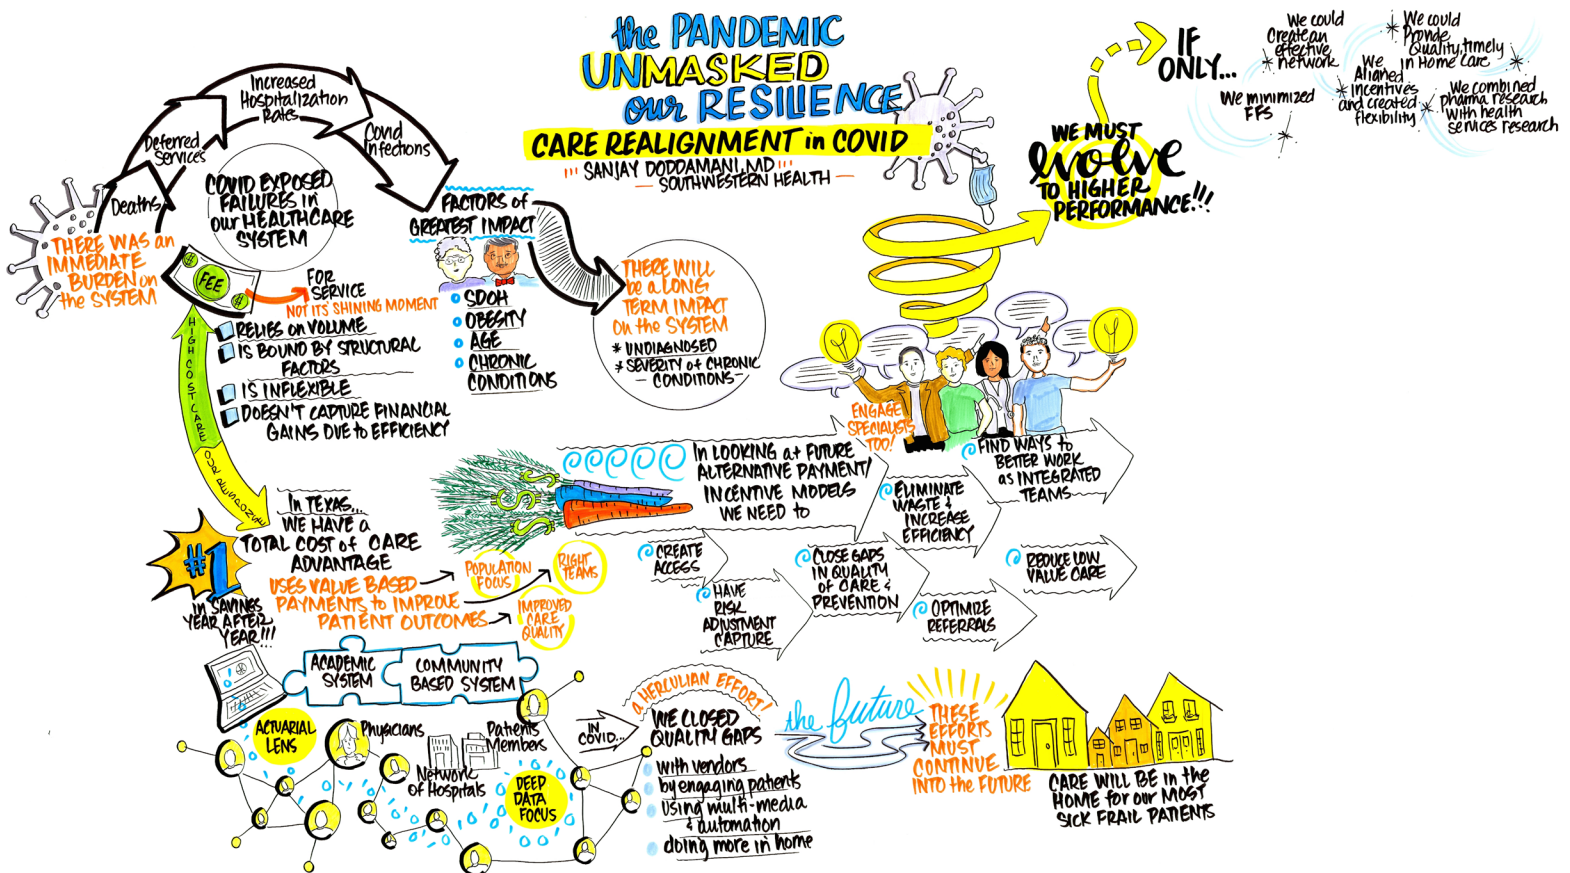 the PANDEMIC
UNMASKED
our RESILIENCE
CARE REALIGNMENT in COVID
SANJAY DODDAMANI, MD
SOUTHWESTERN HEALTH
THERE WAS an
IMMEDIATE
BURDEN on
the SYSTEM
Deaths
Deferred
Services
Increased
Hospitalization
Rates
Covid
Infections
COVID EXPOSED
FAILURES in
our HEALTHCARE
SYSTEM
$ FEE $
FOR
SERVICE
NOT IT'S SHINING MOMENT
RELIES on VOLUME
IS BOUND BY STRUCTURAL
FACTORS
IS INFLEXIBLE
DOESN'T CAPTURE FINANCIAL
GAINS DUE to EFFICIENCY
HIGH COST CARE
OUR RESPONSE
FACTORS of
GREATEST IMPACT
SDOH
OBESITY
AGE
CHRONIC
CONDITIONS
THERE WILL
be a LONG
TERM IMPACT
ON the SYSTEM
* UNDIAGNOSED
* SEVERITY of CHRONIC
- CONDITIONS -
#1
in SAVINGS
YEAR AFTER
YEAR!!!
In TEXAS...
WE HAVE a
TOTAL COST of CARE
ADVANTAGE
USES VALUE BASED
PAYMENTS to IMPROVE
PATIENT OUTCOMES
POPULATION
FOCUS
RIGHT
TEAMS
IMPROVED
CARE
QUALITY
$
$
$
In LOOKING at FUTURE
ALTERNATIVE PAYMENT/
INCENTIVE MODELS
WE NEED to
CREATE
ACCESS
HAVE
RISK
ADJUSTMENT
CAPTURE
CLOSE GAPS
IN QUALITY
OF CARE &
PREVENTION
ELIMINATE
WASTE &
INCREASE
EFFICIENCY
OPTIMIZE
REFERRALS
FIND WAYS to
BETTER WORK
as INTEGRATED
TEAMS
REDUCE LOW
VALUE CARE
ENGAGE
SPECIALISTS
TOO!
WE MUST
evolve
TO HIGHER
PERFORMANCE!!!
IF
ONLY...
We minimized
FFS
We could
Create an
effective
network
We
Aligned
incentives
and created
flexibility
We could
Provide
Quality, timely
in Home care
We combined
pharma research
with health
services research
ACADEMIC
SYSTEM
COMMUNITY
BASED SYSTEM
ACTUARIAL
LENS
Physicians
Network
of Hospitals
Patients
Members
DEEP
DATA
FOCUS
IN
COVID...
a HERCULIAN EFFORT!
WE CLOSED
QUALITY GAPS
with vendors
by engaging patients
using multi-media
& automation
doing more in home
the future
THESE
EFFORTS
MUST
CONTINUE
INTO the FUTURE
CARE WILL BE in the
HOME for our MOST
SICK FRAIL PATIENTS